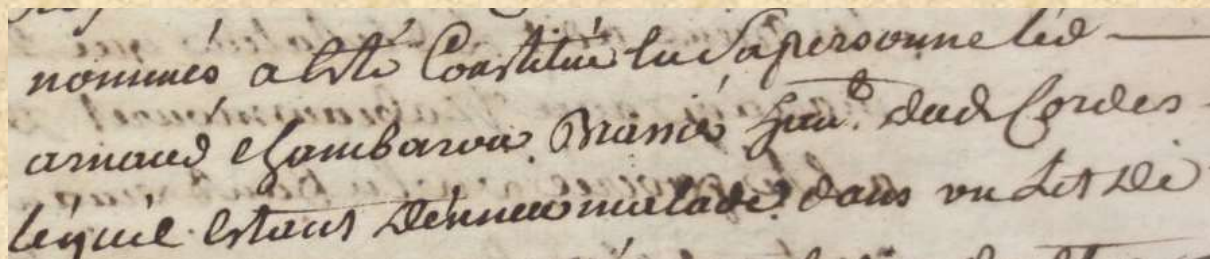 nommés a esté Constitué en Sa personne led
arnaud Chambarou Brassié hau.t dud Cordes
lequel estant détenu malade dans un Lit De